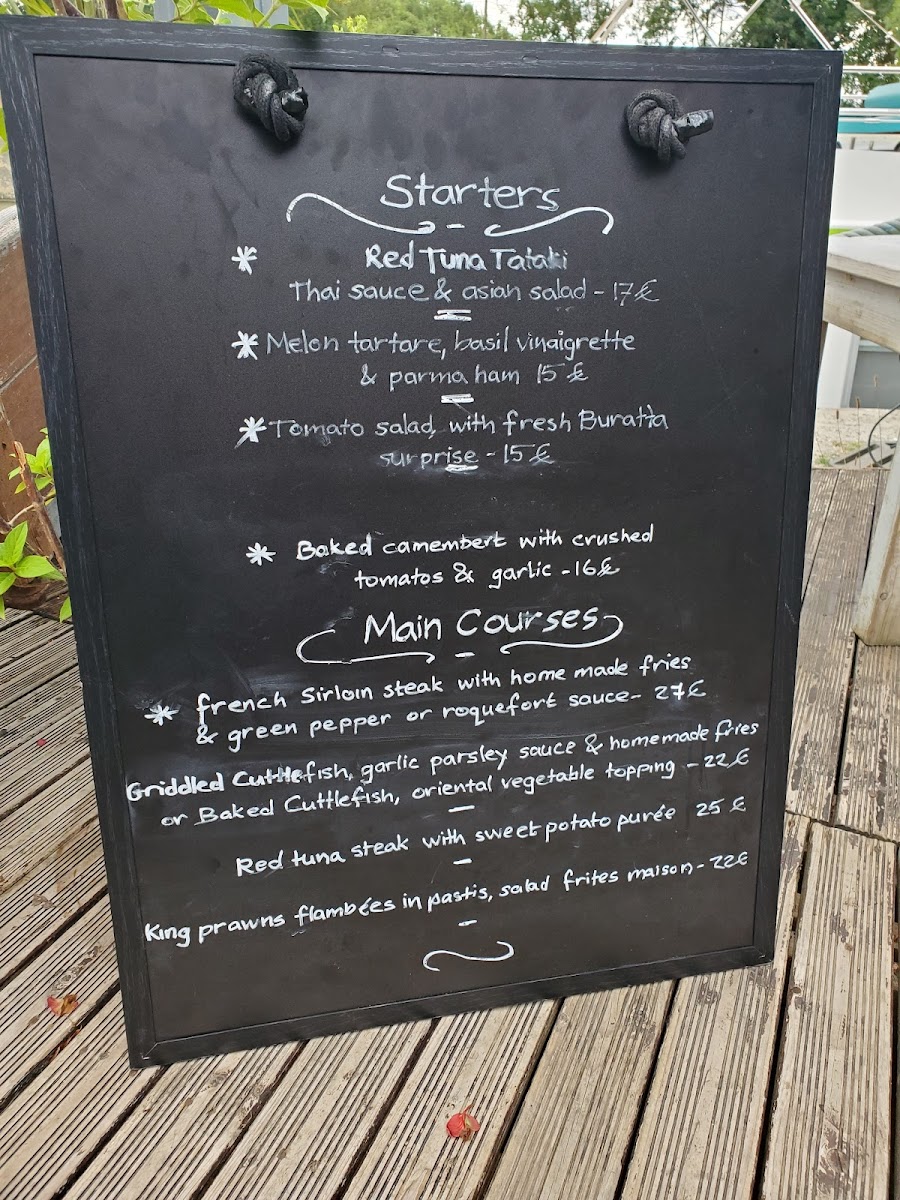 Starters
* Red Tuna Tataki
Thai sauce & asian salad - 17€
* Melon tartare, basil vinaigrette
& parma ham 15€
* Tomato salad, with fresh Buratta
surprise - 15€
* Baked camembert with crushed
tomatos & garlic - 16€
Main Courses
* french Sirloin steak with home made fries
& green pepper or roquefort sauce - 27€
Griddled Cuttlefish, garlic parsley sauce & homemade fries
or Baked Cuttlefish, oriental vegetable topping - 22€
Red tuna steak with sweet potato purée 25€
King prawns flambées in pastis, salad frites maison - 22€